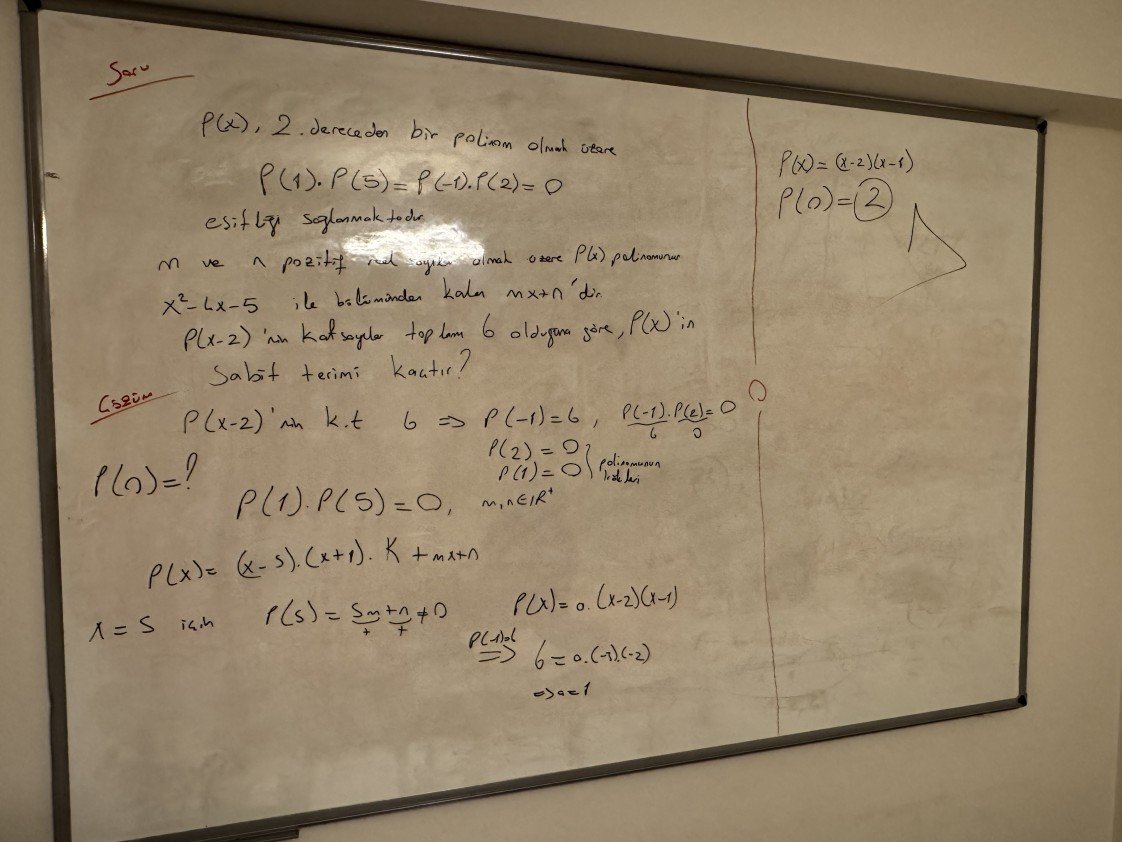 Soru
P(x), 2. dereceden bir polinom olmak üzere
P(1).P(5)=P(-1).P(2)=0
eşitliği sağlanmaktadır
m ve n pozitif reel sayılar olmak üzere P(x) polinomunun
x²-4x-5 ile bölümünden kalan mx+n'dir.
P(x-2)'nin katsayılar toplamı 6 olduğuna göre, P(x)'in
Sabit terimi kaçtır?
Çözüm
P(x-2)'nin k.t 6 => P(-1)=6, P(-1).P(2)=0
6 0
P(2)=0
P(1)=0 polinomunun kökleri
P(0)=?
P(1).P(5)=0, m,n∈IR⁺
P(x)=(x-5).(x+1).K+mx+n
x=5 için P(5)=5m+n≠0
+ +
P(x)=a.(x-2)(x-1)
P(-1)=6
=> 6=a.(-3).(-2)
=>a=1
P(x)=(x-2)(x-1)
P(0)=2